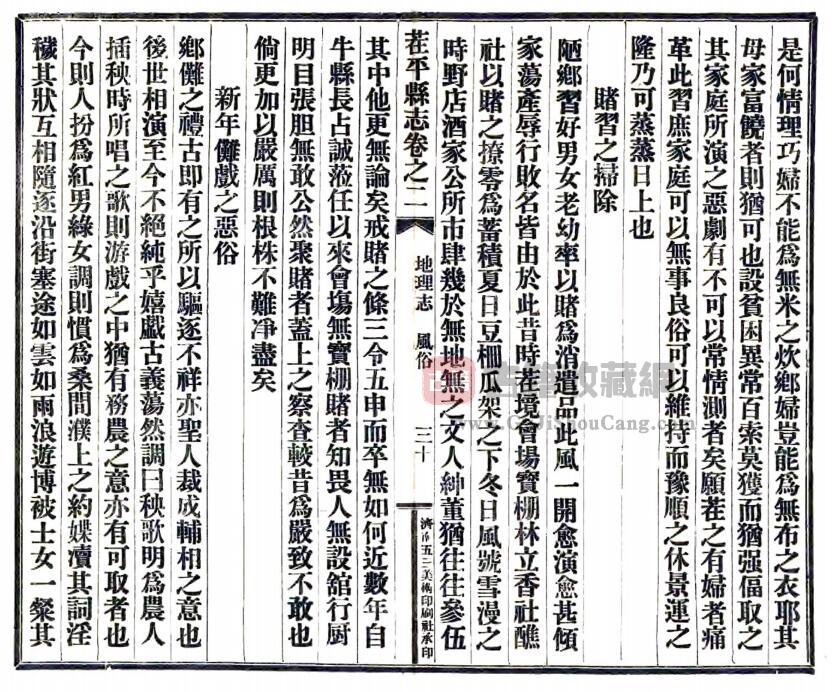 是何情理巧婦不能爲無米之炊鄉婦豈能爲無布之衣耶其
母家富饒者則猶可也設貧困異常百索莫獲而猶强偪取之
其家庭所演之惡劇有不可以常情測者矣願茬之有婦者痛
革此習庶家庭可以無事良俗可以維持而豫順之休景運之
隆乃可蒸蒸日上也
賭習之掃除
陋鄉習好男女老幼率以賭爲消遣品此風一開愈演愈甚傾
家蕩產辱行敗名皆由於此昔時茬境會場寳棚林立香社醮
社以賭之撩零爲蓄積夏日豆棚瓜架之下冬日風號雪漫之
時野店酒家公所市肆幾於無地無之文人紳董猶往往參伍
茬平縣志卷之二
地理志
風俗
三十
濟南五三美術印刷社承印
其中他更無論矣戒賭之條三令五申而卒無如何近數年自
牛縣長占誠蒞任以來會塲無寳棚賭者知畏人無設舘行厨
明目張胆無敢公然聚賭者蓋上之察查較昔爲嚴致不敢也
倘更加以嚴厲則根株不難凈盡矣
新年儺戲之惡俗
鄉儺之禮古即有之所以驅逐不祥亦聖人裁成輔相之意也
後世相演至今不絕純乎嬉戲古義蕩然調曰秧歌明爲農人
插秧時所唱之歌則游戲之中猶有務農之意亦有可取者也
今則人扮爲紅男綠女調則慣爲桑間濮上之約媟瀆其詞淫
穢其狀互相隨逐沿街塞途如雲如雨浪遊博被士女一粲其
古籍收藏網
www.GuJiShouCang.com